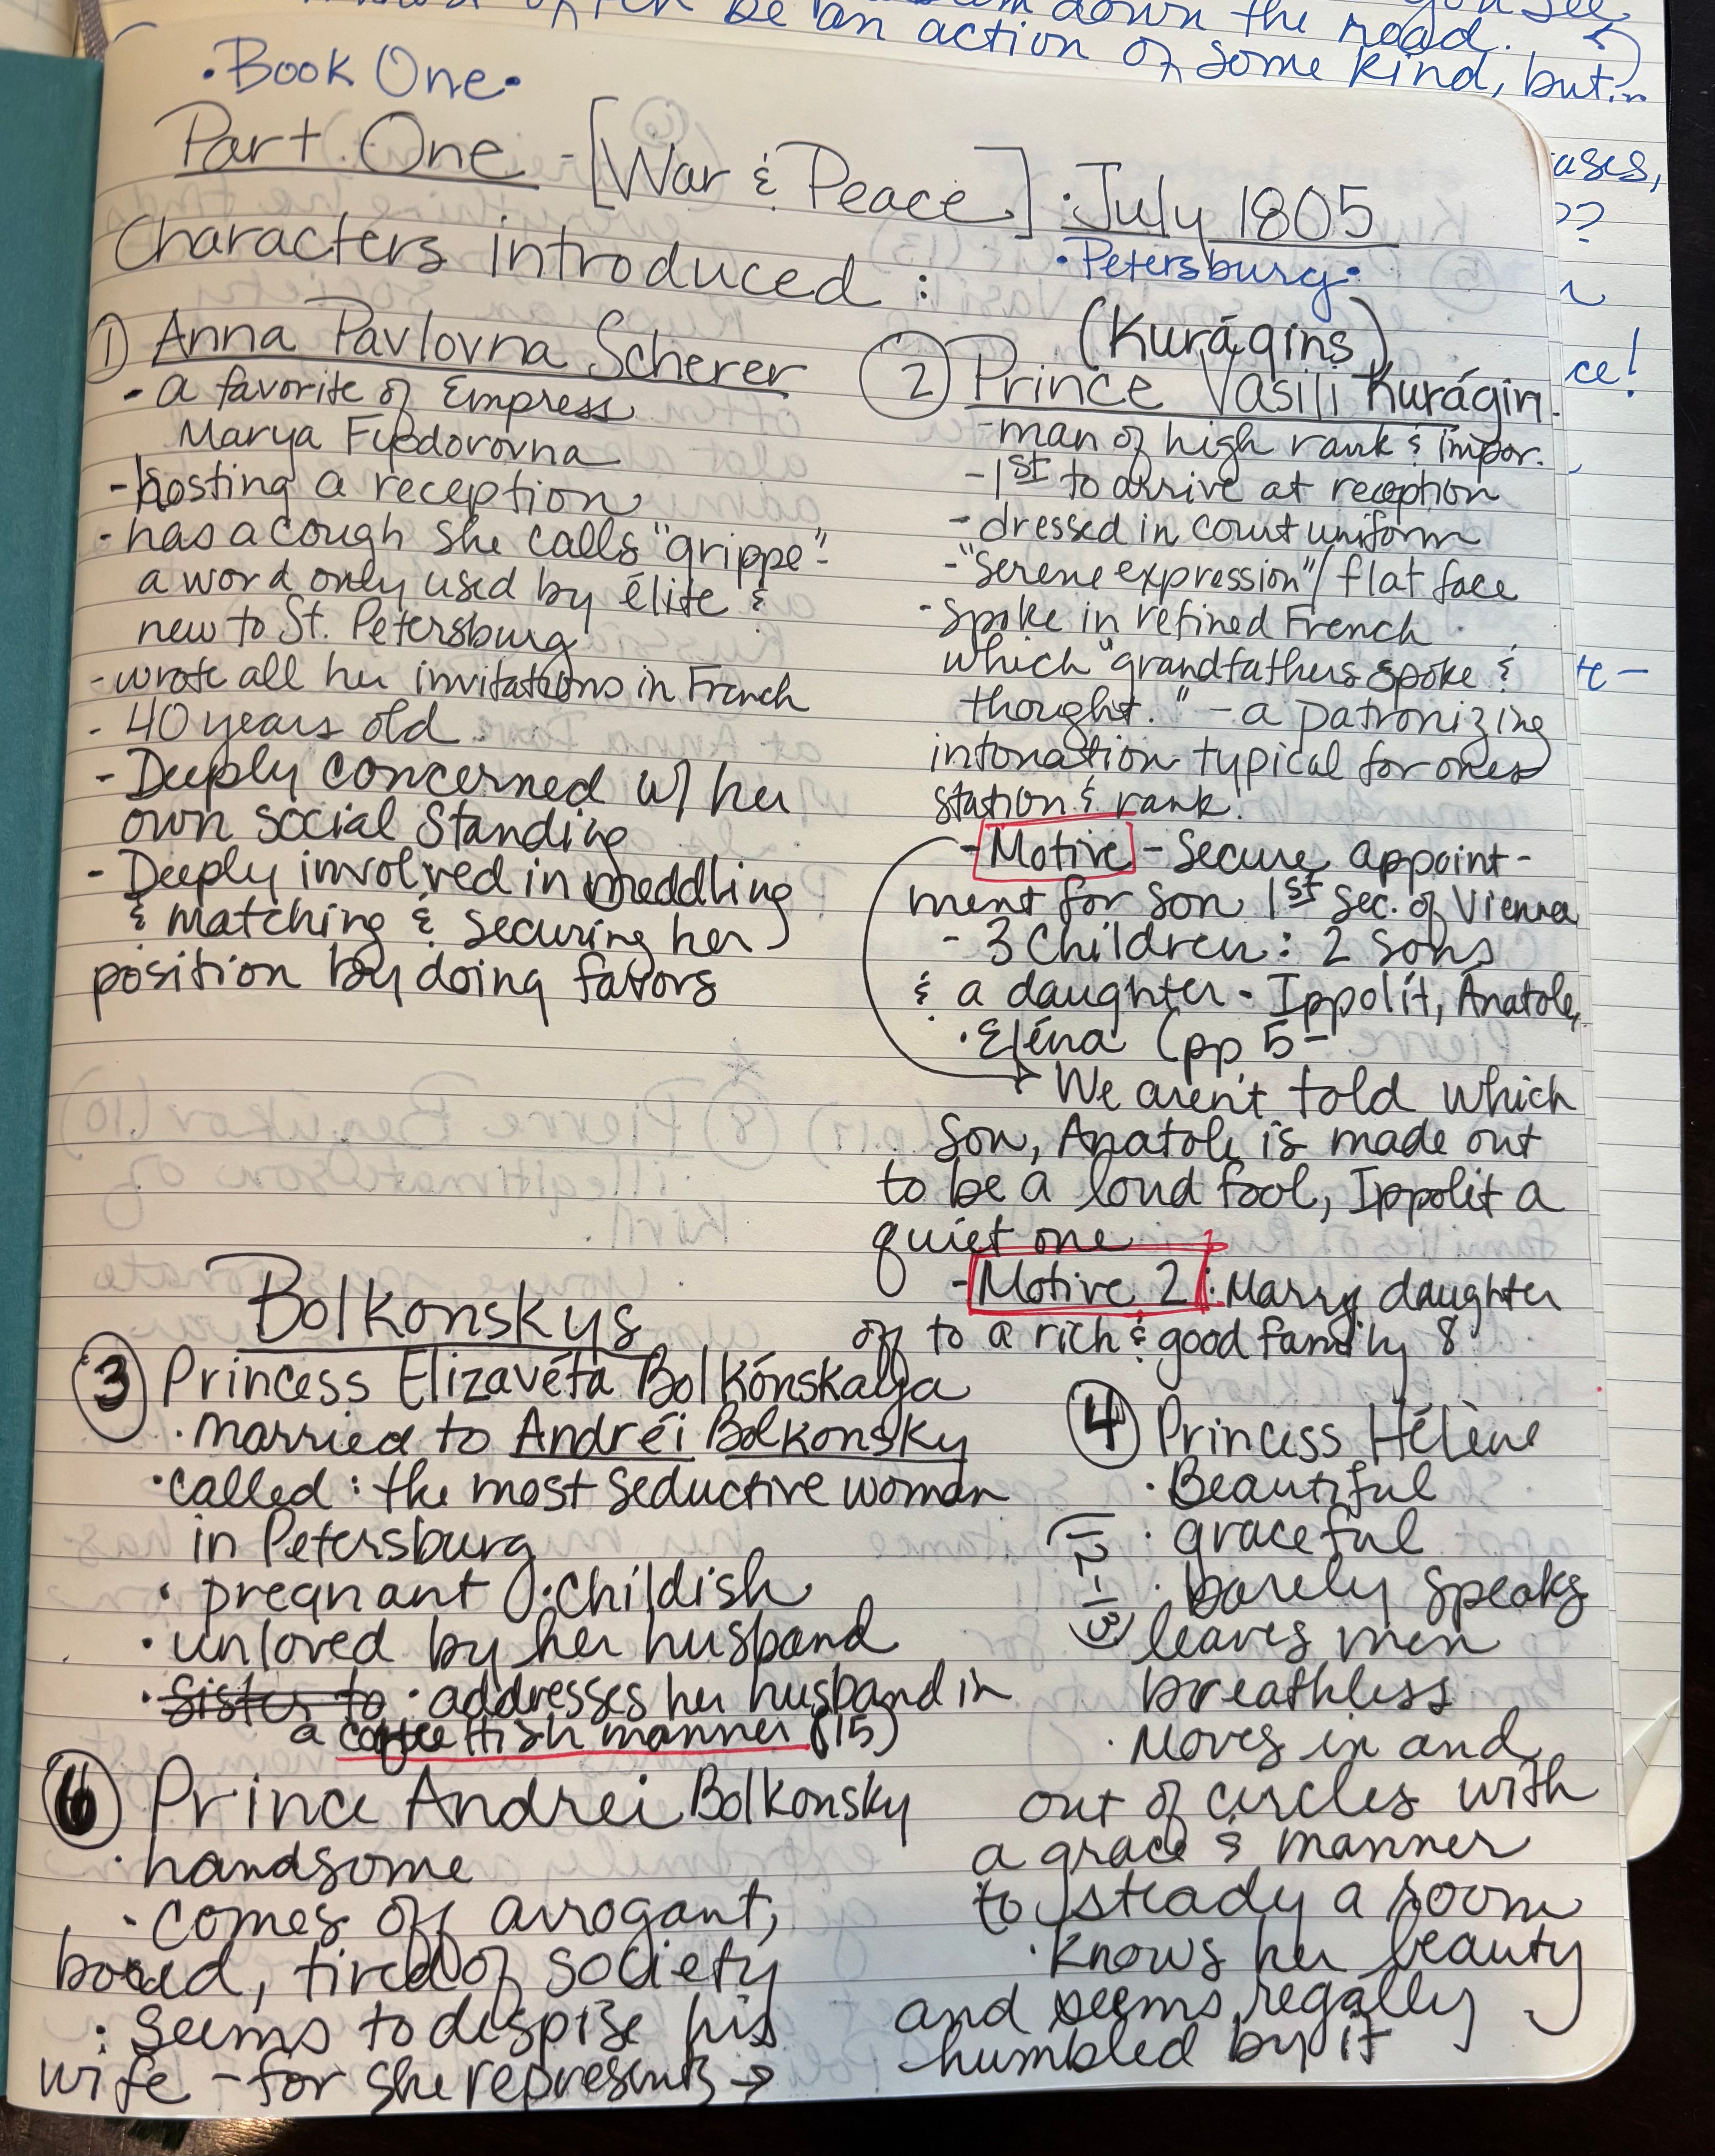 be an action of some kind, but...
down the road.
you see
ases,
??
ce!
te-
•Book One•
Part One - [War & Peace] • July 1805
•Petersburg•
Characters introduced :
① Anna Pavlovna Scherer
- a favorite of Empress
Marya Fyodorovna
- hosting a reception
- has a cough she calls "grippe" -
a word only used by élite &
new to St. Petersburg
- wrote all her invitations in French
- 40 years old
- Deeply concerned w/ her
own social standing
- Deeply involved in meddling
& matching & securing her
position by doing favors
(Kurágins)
② Prince Vasili Kurágin
- man of high rank & impor.
- 1st to arrive at reception
- dressed in court uniform
- "serene expression"/ flat face
- spoke in refined French
which "grandfathers spoke &
thought." - a patronizing
intonation typical for ones
station & rank.
- Motive - Secure appoint-
ment for son 1st Sec. of Vienna
- 3 Children : 2 sons
& a daughter - Ippolít, Ánatole,
• Eléna (pp 5-
We aren't told which
son, Anatole is made out
to be a loud fool, Ippolit a
quiet one
- Motive 2 : Marry daughter
off to a rich & good family 8
Bolkonskys
③ Princess Elizavéta Bolkónskaya
• married to Andréi Bolkonsky
• called : the most seductive woman
in Petersburg
• pregnant • childish
• unloved by her husband
• Sister to • addresses her husband in
a coquettish manner (15)
④ Princess Hélène
• Beautiful
• graceful
(12-13)
• barely speaks
leaves men
breathless
• Moves in and
out of circles with
a grace & manner
to steady a room
• Knows her beauty
and seems regally
humbled by it
⑥ Prince Andrei Bolkonsky
• handsome
• comes off arrogant,
bored, tired of society
• Seems to despise his
wife - for she represents →